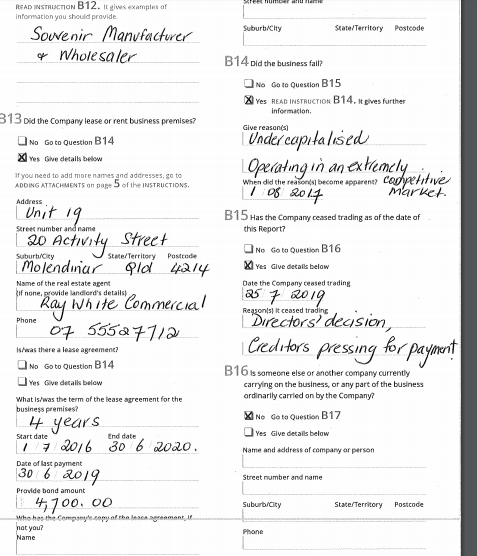 READ INSTRUCTION B12. It gives examples of
information you should provide.
Souvenir Manufacturer
& Wholesaler
B13 Did the Company lease or rent business premises?
No Go to Question B14
Yes Give details below
If you need to add more names and addresses, go to
ADDING ATTACHMENTS on page 5 of the INSTRUCTIONS.
Address
Unit 19
Street number and name
20 Activity Street
Suburb/City State/Territory Postcode
Molendinar Qld 4214
Name of the real estate agent
(If none, provide landlord's details)
Ray White Commercial
Phone
07 55527712
Is/was there a lease agreement?
No Go to Question B14
Yes Give details below
What is/was the term of the lease agreement for the
business premises?
4 years
Start date End date
1 7 2016 30 6 2020.
Date of last payment
30 6 2019
Provide bond amount
4,700.00
Who has the Company's copy of the lease agreement, if
not you?
Name
Street number and name
Suburb/City State/Territory Postcode
B14 Did the business fail?
No Go to Question B15
Yes READ INSTRUCTION B14. It gives further
information.
Give reason(s)
Undercapitalised
Operating in an extremely
When did the reason(s) become apparent? competitive
1 08 2017 market.
B15 Has the Company ceased trading as of the date of
this Report?
No Go to Question B16
Yes Give details below
Date the Company ceased trading
25 7 2019
Reason(s) it ceased trading
Directors' decision,
Creditors pressing for payment
B16 Is someone else or another company currently
carrying on the business, or any part of the business
ordinarily carried on by the Company?
No Go to Question B17
Yes Give details below
Name and address of company or person
Street number and name
Suburb/City State/Territory Postcode
Phone